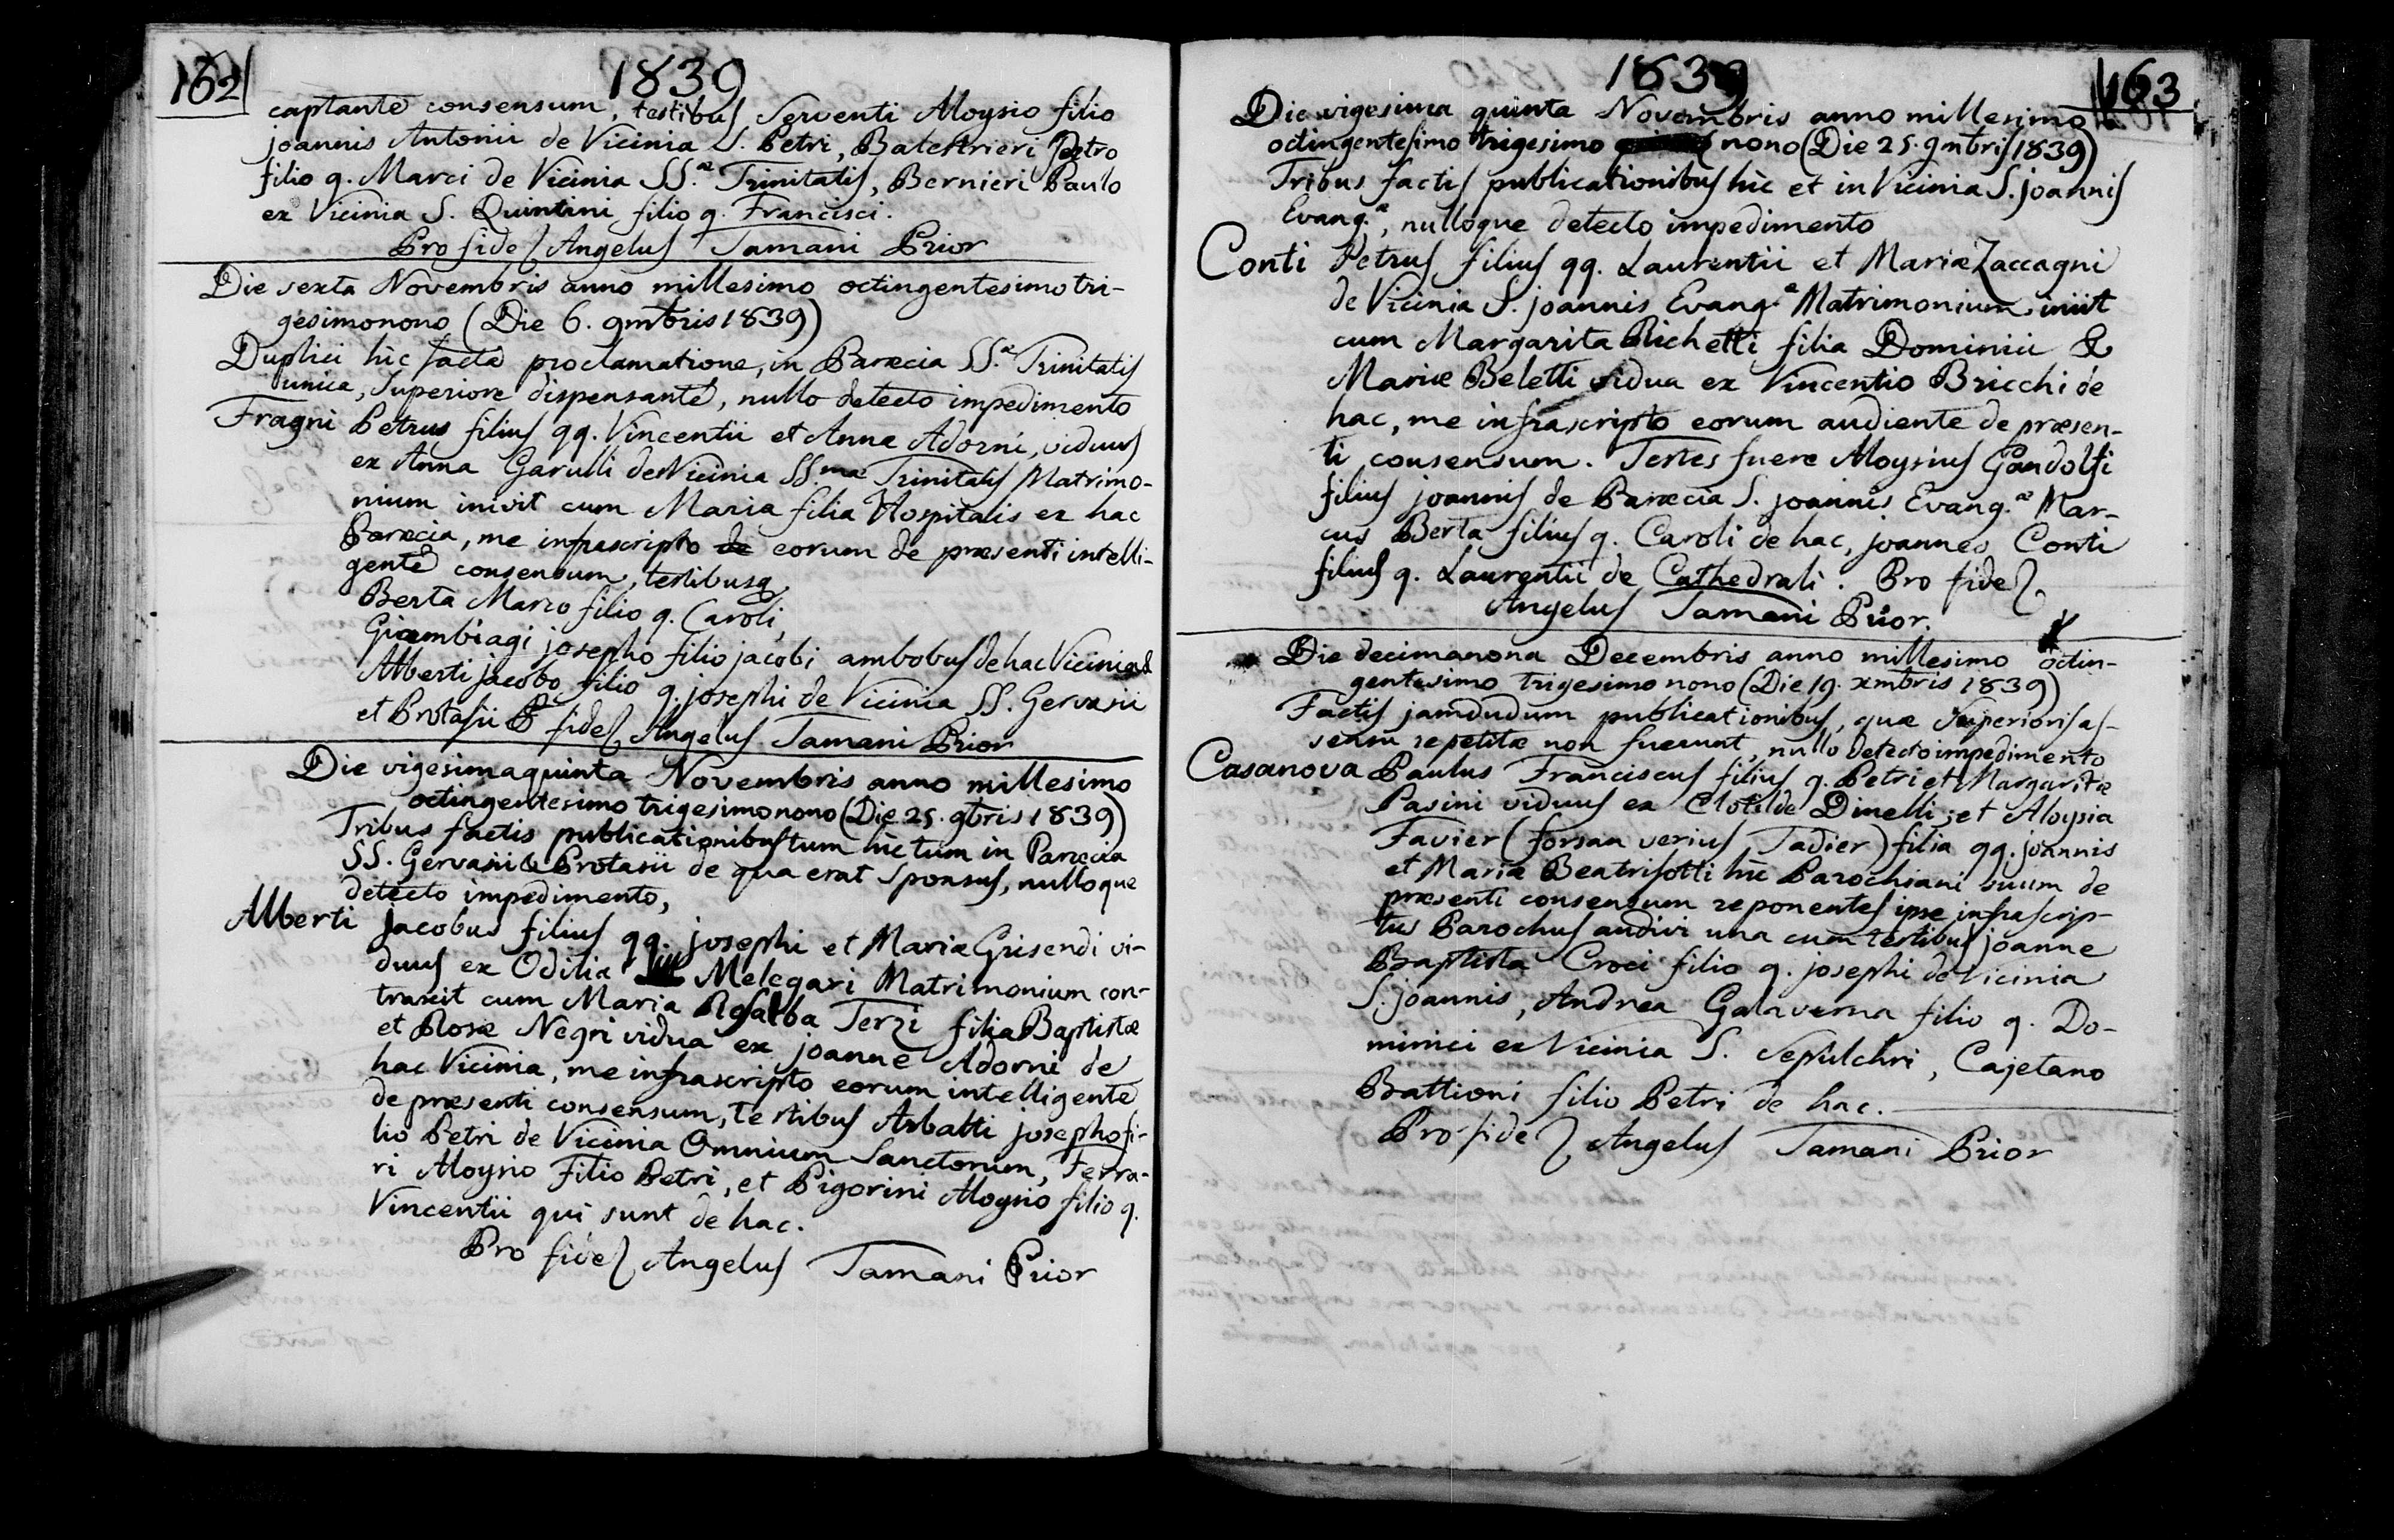 162
1839
captante consensum, testibus Serventi Aloysio filio
joannis Antonii de Vicinia S. Petri, Balestrieri Petro
filio q. Marci de Vicinia SS.æ Trinitatis, Bernieri Paulo
ex Vicinia S. Quintini filio q. Francisci.
Pro fide Angelus Tamani Prior
Die sexta Novembris anno millesimo octingentesimo tri-
gesimonono (Die 6. 9mbris 1839)
Duplici hìc factâ proclamatione, in Paræcia SS.æ Trinitatis
unica, Superiore dispensante, nullo detecto impedimento
Fragni Petrus filius qq. Vincentii et Annæ Adorni, viduus
ex Anna Garulli de Vicinia SS.mæ Trinitatis Matrimo-
nium inivit cum Maria filia Hospitalis ex hac
Paræcia, me infrascripto de eorum de præsenti intelli-
gente consensum, testibusq.
Berta Marco filio q. Caroli,
Giambiagi josepho filio jacobi ambobus de hac Vicinia &
Alberti jacobo filio q. josephi de Vicinia SS. Gervasii
et Protasii P fide Angelus Tamani Prior
Die vigesimaquinta Novembris anno millesimo
octingentesimo trigesimonono (Die 25. 9bris 1839)
Tribus factis publicationibus tum hìc tum in Paræcia
SS. Gervasii & Protasii de qua erat Sponsus, nulloque
detecto impedimento,
Alberti jacobus filius qq. josephi et Mariæ Grisendi vi-
duus ex Odilia Melegari Matrimonium con-
traxit cum Maria Rosalba Terzi filia Baptistæ
et Rosæ Negri vidua ex joanne Adorni de
hac Vicinia, me infrascripto eorum intelligente
de præsenti consensum, testibus Arbatti josepho fi-
lio Petri de Vicinia Omnium Sanctorum, Ferra-
ri Aloysio Filio Petri, et Pigorini Aloysio filio q.
Vincentii qui sunt de hac.
Pro fide Angelus Tamani Prior
1839
163
Die vigesima quinta Novembris anno millesimo
octingentesimo trigesimo nono (Die 25. 9mbris 1839)
Tribus factis publicationibus hìc et in Vicinia S. joannis
Evang.æ, nulloque detecto impedimento
Conti Petrus filius qq. Laurentii et Mariæ Zaccagni
de Vicinia S. joannis Evang.æ Matrimonium iniit
cum Margarita Richetti filia Dominici &
Mariæ Beletti vidua ex Vincentio Bricchi de
hac, me infrascripto eorum audiente de præsen-
ti consensum. Testes fuere Aloysius Gandolfi
filius joannis de Paræcia S. joannis Evang.æ Mar-
cus Berta filius q. Caroli de hac, joannes Conti
filius q. Laurentii de Cathedrali. Pro fide
Angelus Tamani Prior.
Die decimanona Decembris anno millesimo octin-
gentesimo trigesimo nono (Die 19. xmbris 1839)
Factis jamdudum publicationibus, quæ Superioris as-
sensu repetitæ non fuerunt, nullo detecto impedimento
Casanova Paulus Franciscus filius q. Petri et Margaritæ
Pasini viduus ex Clotilde Dinelli; et Aloysia
Favier (forsan verius Tadier) filia qq. joannis
et Mariæ Beatrisotti hìc Parochiani suum de
præsenti consensum reponentes ipse infrascrip-
tus Parochus audivi una cum testibus joanne
Baptista Croci filio q. josephi de Vicinia
S. joannis, Andrea Galaverna filio q. Do-
minici ex Vicinia S. Sepulchri, Cajetano
Battioni filio Petri de hac.
Pro fide Angelus Tamani Prior